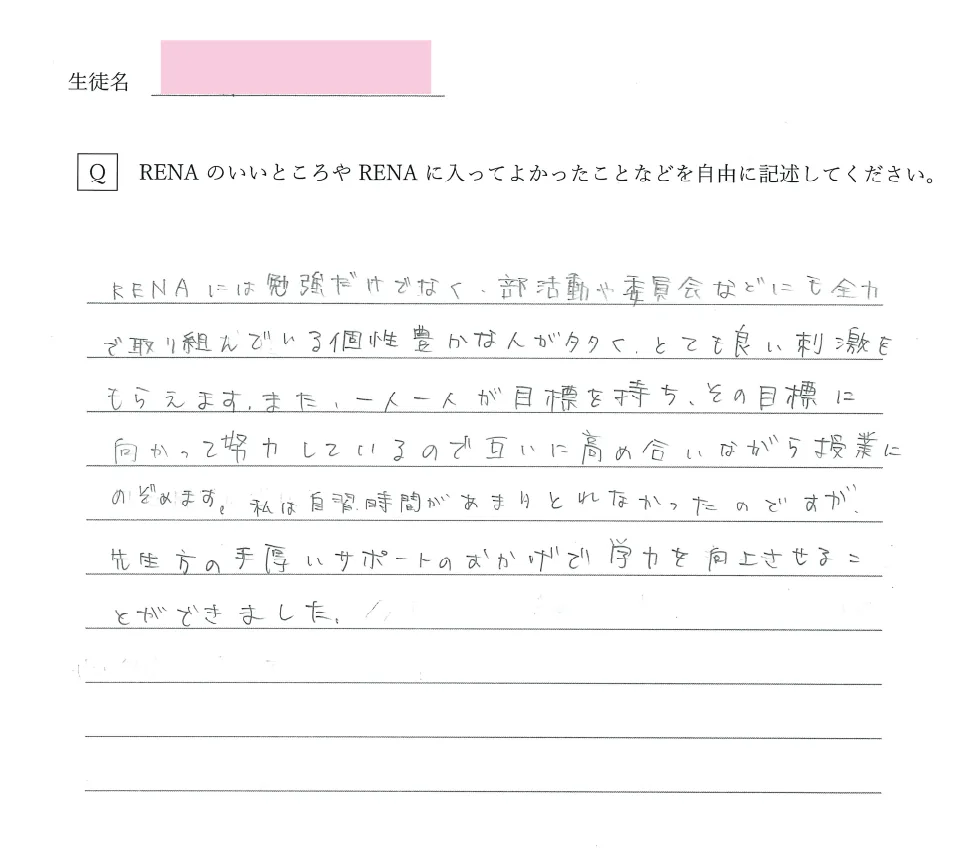 生徒名
Q RENAのいいところやRENAに入ってよかったことなどを自由に記述してください。
RENAには勉強だけでなく、部活動や委員会などにも全力
で取り組んでいる個性豊かな人が多く、とても良い刺激を
もらえます。また、一人一人が目標を持ち、その目標に
向かって努力しているので互いに高め合いながら授業に
のぞめます。私は自習時間があまりとれなかったのですが、
先生方の手厚いサポートのおかげで学力を向上させるこ
とができました。